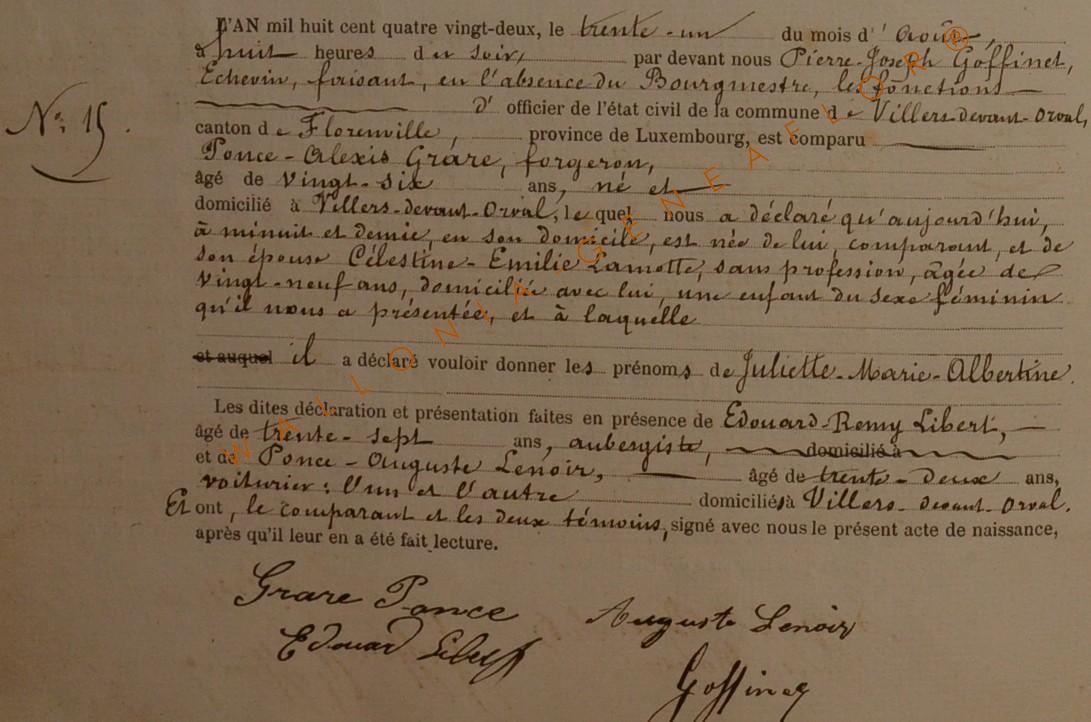 L'AN mil huit cent quatre vingt-deux, le trente-un du mois d'Août,
à huit heures du soir, par devant nous Pierre-Joseph Goffinet,
Echevin, faisant, en l'absence du Bourgmestre, les fonctions
d'officier de l'état civil de la commune de Villers-devant-Orval,
canton de Florenville, province de Luxembourg, est comparu
Ponce-Alexis Grare, forgeron,
N° 15.
âgé de vingt-six ans, né et
domicilié à Villers-devant-Orval, lequel nous a déclaré qu'aujourd'hui,
à minuit et demie, en son domicile, est née de lui, comparant, et de
son épouse Célestine-Emilie Lamotte, sans profession, âgée de
vingt-neuf ans, domiciliée avec lui, une enfant du sexe féminin
qu'il nous a présentée, et à laquelle
et auquel il a déclaré vouloir donner les prénoms de Juliette-Marie-Albertine.
Les dites déclaration et présentation faites en présence de Edouard-Remy Libert,
âgé de trente-sept ans, aubergiste, domicilié à
et de Ponce-Auguste Lenoir, âgé de trente-deux ans,
voiturier; l'un et l'autre domiciliés à Villers-devant-Orval.
Et ont, le comparant et les deux témoins, signé avec nous le présent acte de naissance,
après qu'il leur en a été fait lecture.
Grare Ponce
Auguste Lenoir
Edouard Libert
Goffinet
WALLONIA GENEALOR ®